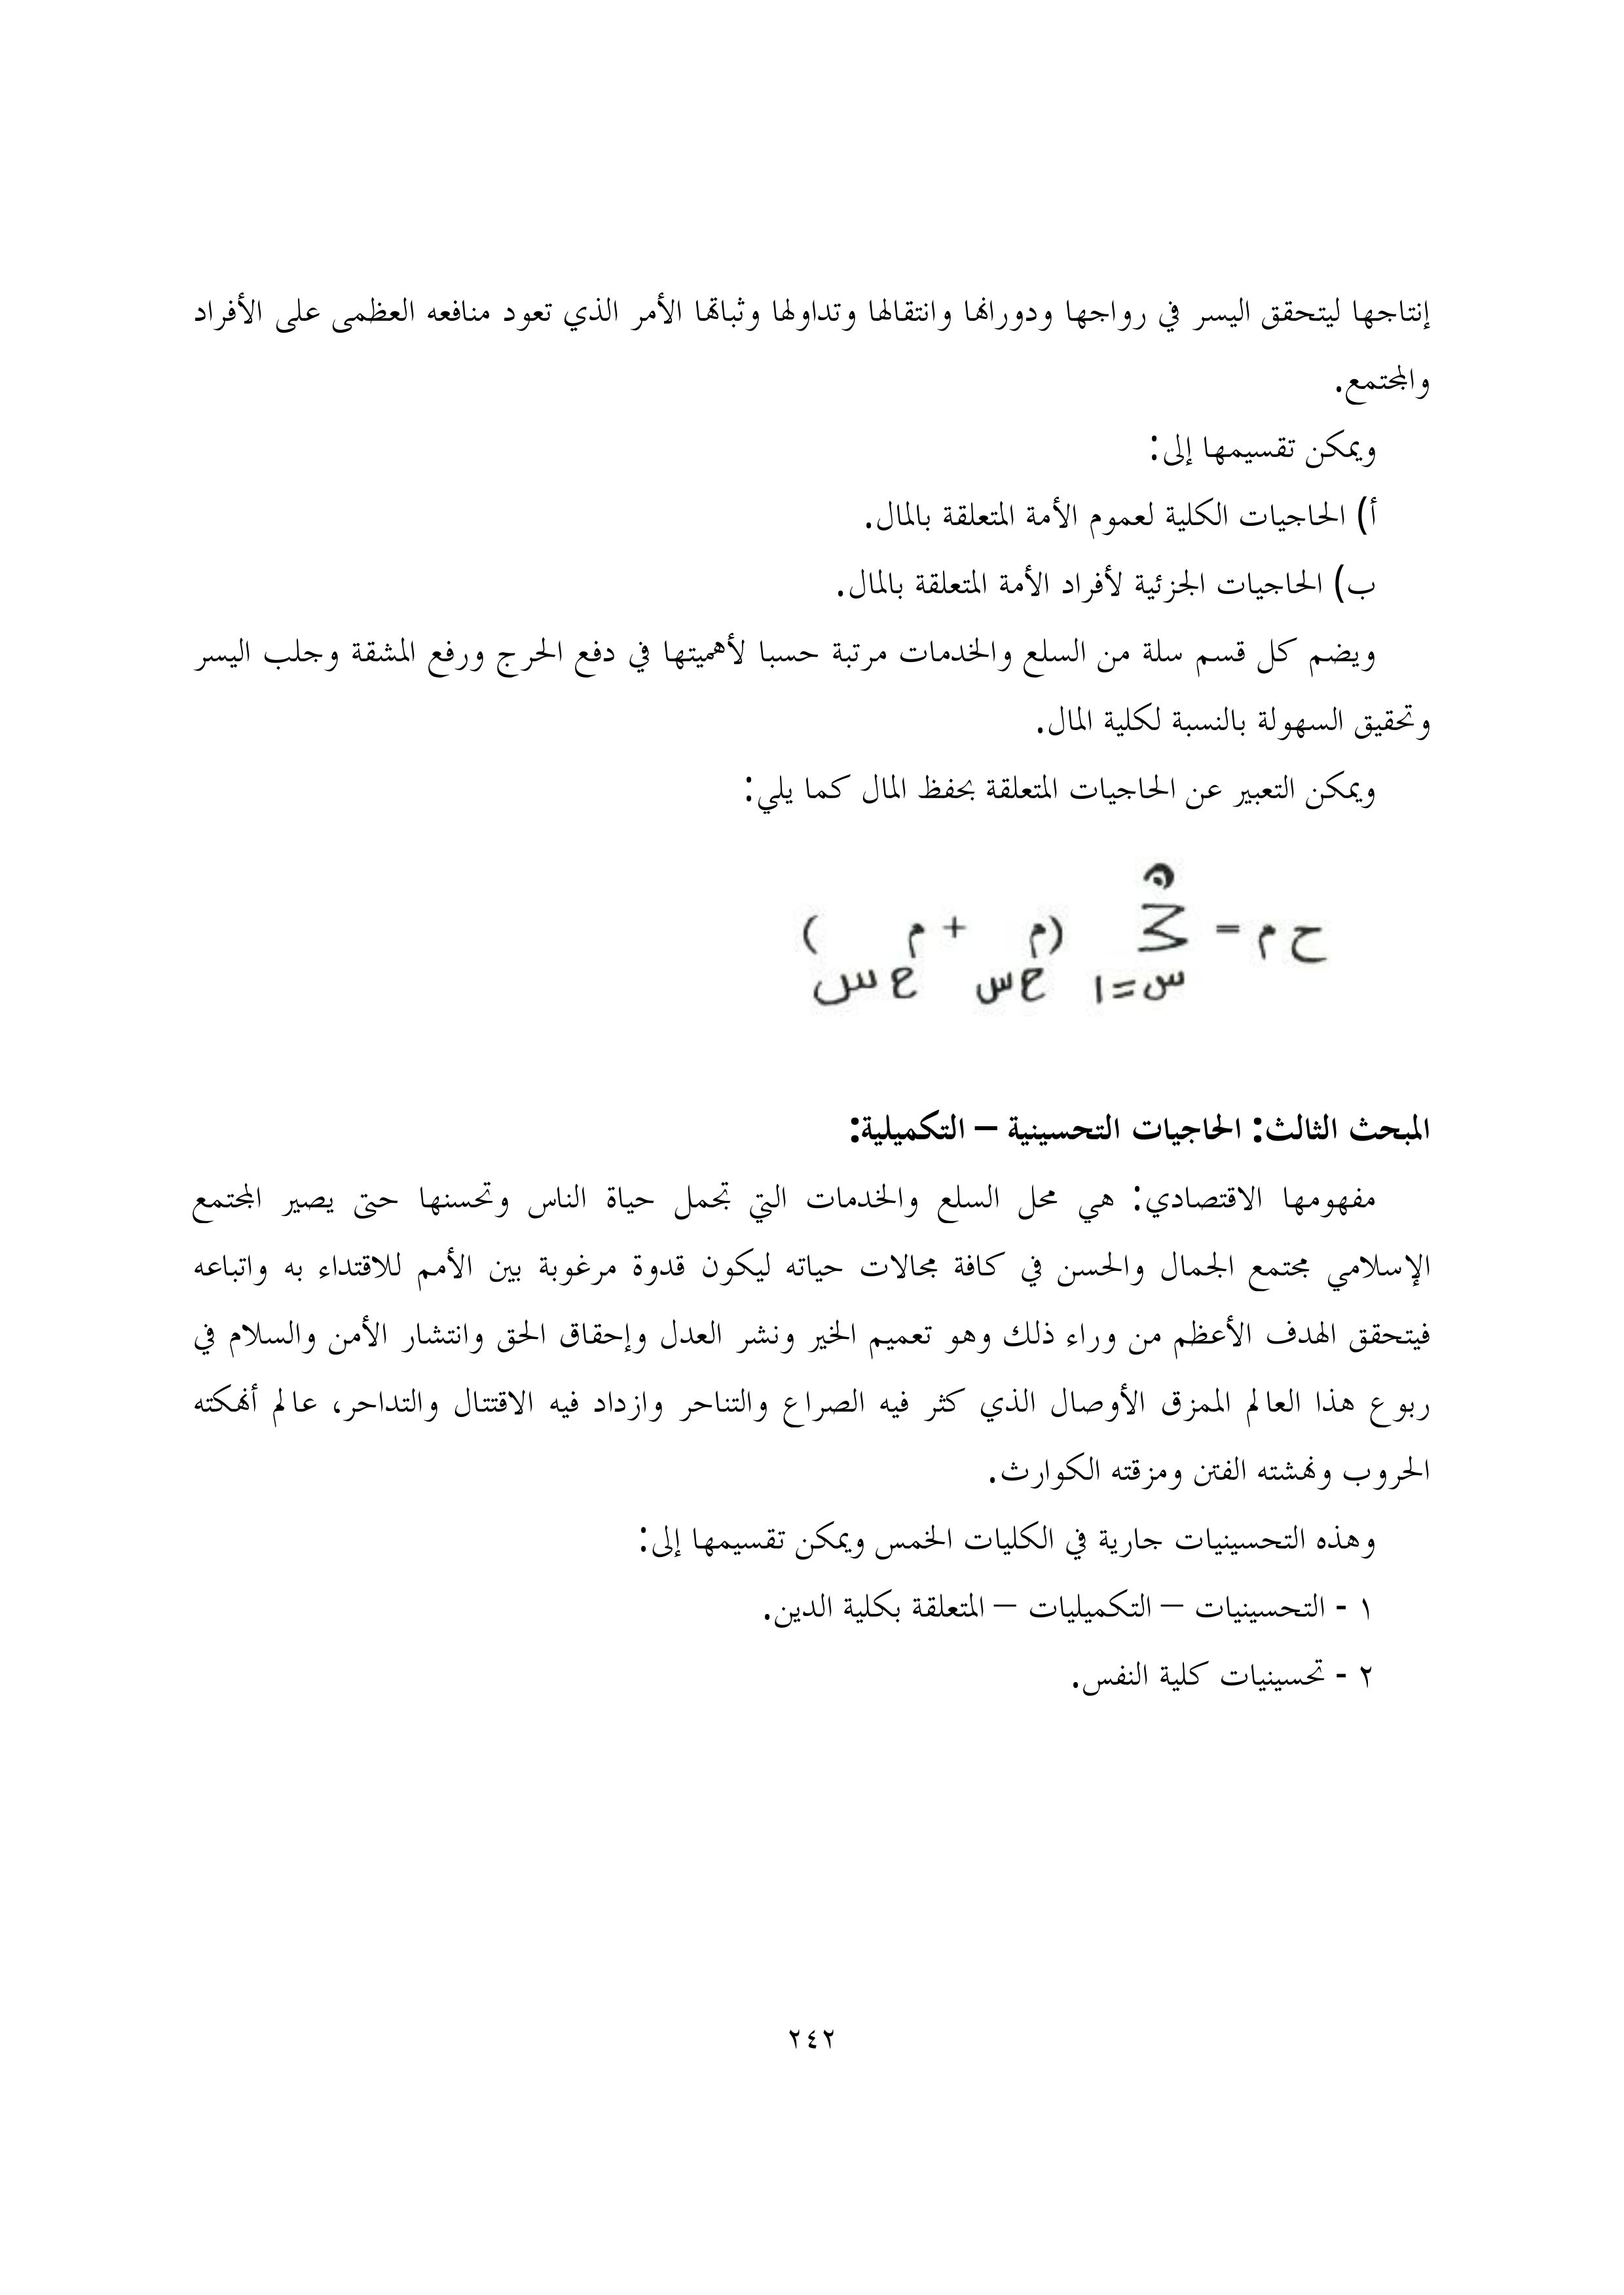 إنتاجها ليتحقق اليسر في رواجها ودورانها وانتقالها وتداولها وثباتها الأمر الذي تعود منافعه العظمى على الأفراد
والمجتمع.
ويمكن تقسيمها إلى:
أ) الحاجيات الكلية لعموم الأمة المتعلقة بالمال.
ب) الحاجيات الجزئية لأفراد الأمة المتعلقة بالمال.
ويضم كل قسم سلة من السلع والخدمات مرتبة حسبا لأهميتها في دفع الحرج ورفع المشقة وجلب اليسر
وتحقيق السهولة بالنسبة لكلية المال.
ويمكن التعبير عن الحاجيات المتعلقة بحفظ المال كما يلي:
ن
ح م = Σ (م + م )
س=١ ح س ح س
المبحث الثالث: الحاجيات التحسينية – التكميلية:
مفهومها الاقتصادي: هي محل السلع والخدمات التي تجمل حياة الناس وتحسنها حتى يصير المجتمع
الإسلامي مجتمع الجمال والحسن في كافة مجالات حياته ليكون قدوة مرغوبة بين الأمم للاقتداء به واتباعه
فيتحقق الهدف الأعظم من وراء ذلك وهو تعميم الخير ونشر العدل وإحقاق الحق وانتشار الأمن والسلام في
ربوع هذا العالم الممزق الأوصال الذي كثر فيه الصراع والتناحر وازداد فيه الاقتتال والتداحر، عالم أنهكته
الحروب ونهشته الفتن ومزقته الكوارث.
وهذه التحسينيات جارية في الكليات الخمس ويمكن تقسيمها إلى:
١ - التحسينيات – التكميليات – المتعلقة بكلية الدين.
٢ - تحسينيات كلية النفس.
٢٤٢